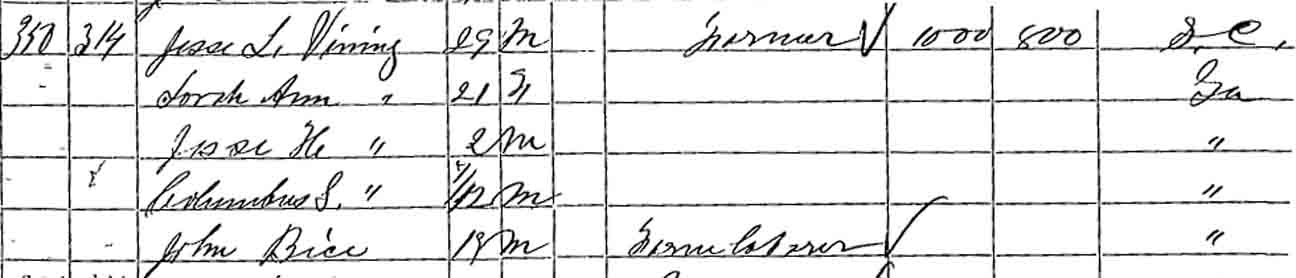 350 314 Jesse L. Vining 29 M Farmer 1000 800 S.C.
Sarah Ann " 21 F Ga
Jesse H " 2 M "
Columbus S. " /12 M "
John Bice 19 M Farm laborer "